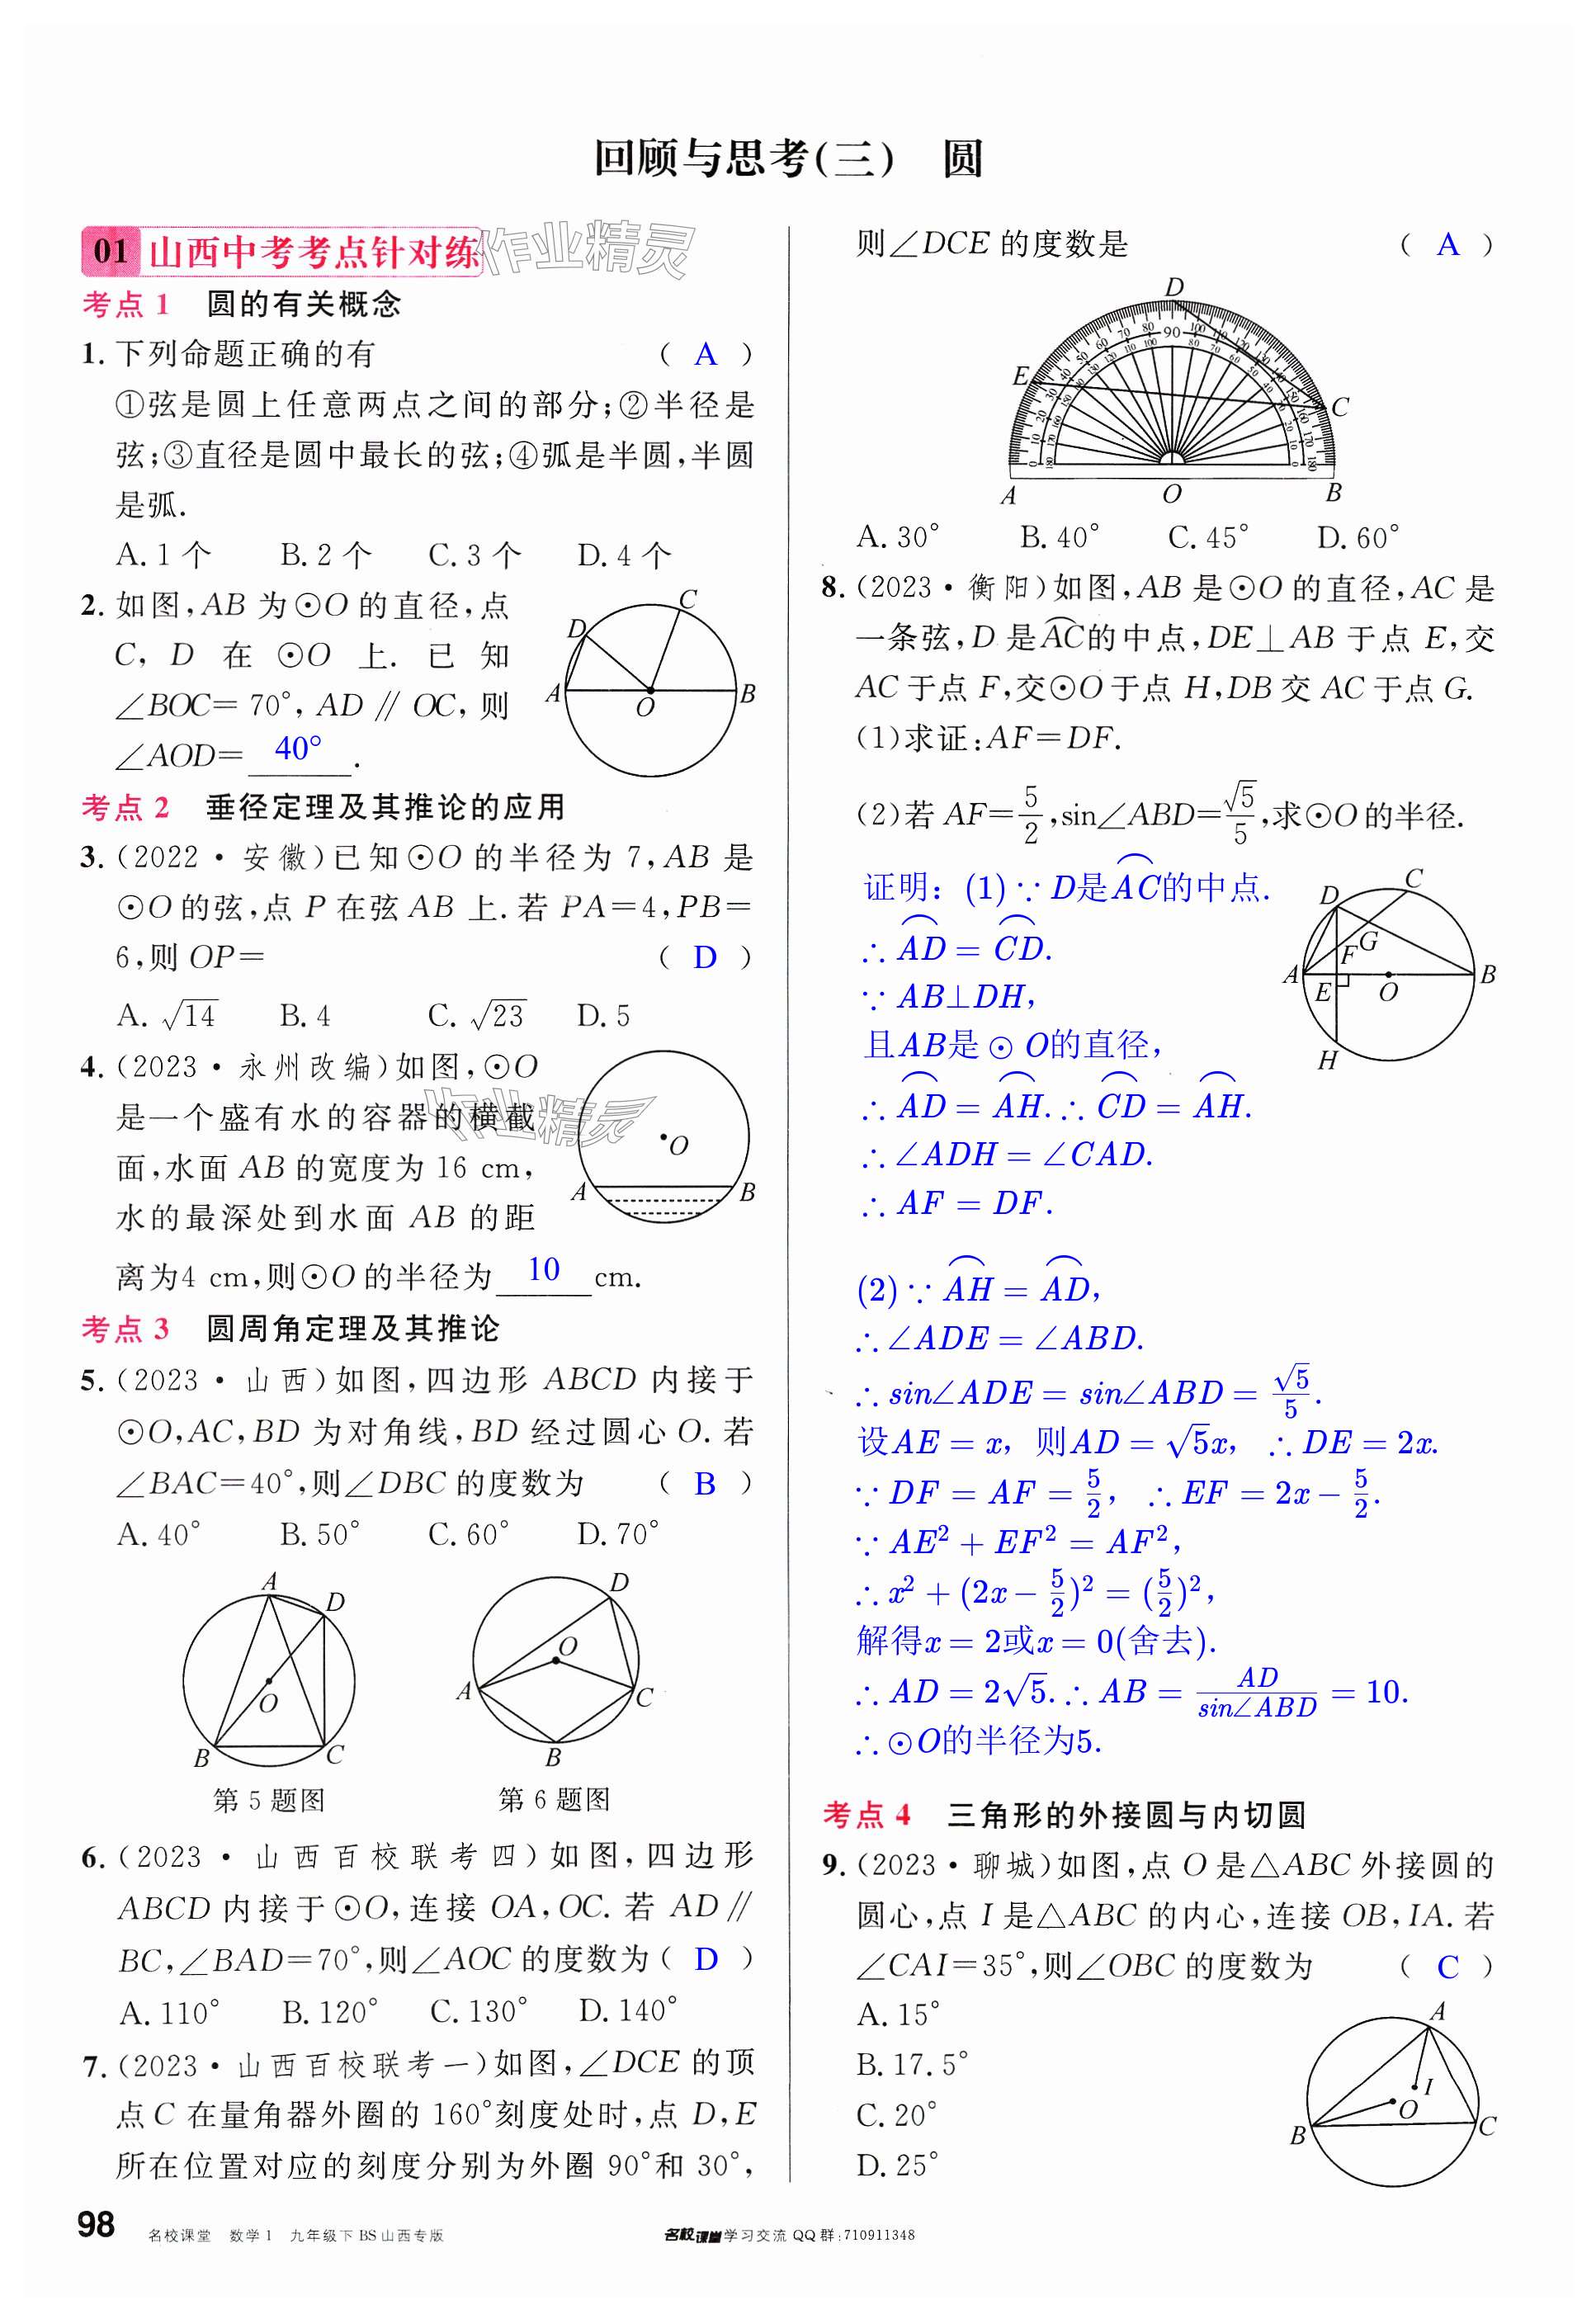 回顾与思考(三)　圆
01 山西中考考点针对练
作业精灵
考点 1　圆的有关概念
1. 下列命题正确的有 ( A )
①弦是圆上任意两点之间的部分;②半径是
弦;③直径是圆中最长的弦;④弧是半圆,半圆
是弧.
A. 1 个　B. 2 个　C. 3 个　D. 4 个
2. 如图,AB 为⊙O 的直径,点
C, D 在 ⊙O 上. 已知
∠BOC= 70°, AD // OC, 则
∠AOD= 40° .
C
D
A
O
B
考点 2　垂径定理及其推论的应用
3. (2022・安徽)已知⊙O 的半径为 7,AB 是
⊙O 的弦,点 P 在弦 AB 上. 若 PA=4,PB=
6,则 OP= ( D )
A. √14　B. 4　C. √23　D. 5
4. (2023・永州改编)如图,⊙O
是一个盛有水的容器的横截
面,水面 AB 的宽度为 16 cm,
水的最深处到水面 AB 的距
离为4 cm,则⊙O 的半径为 10 cm.
作业精灵
O
A
B
考点 3　圆周角定理及其推论
5. (2023・山西)如图,四边形 ABCD 内接于
⊙O,AC,BD 为对角线,BD 经过圆心 O. 若
∠BAC=40°,则∠DBC 的度数为 ( B )
A. 40°　B. 50°　C. 60°　D. 70°
A
D
O
B
C
第 5 题图
D
O
A
C
B
第 6 题图
6. (2023・山西百校联考四)如图,四边形
ABCD 内接于⊙O,连接 OA,OC. 若 AD //
BC,∠BAD=70°,则∠AOC 的度数为 ( D )
A. 110°　B. 120°　C. 130°　D. 140°
7. (2023・山西百校联考一)如图,∠DCE 的顶
点 C 在量角器外圈的 160°刻度处时,点 D,E
所在位置对应的刻度分别为外圈 90°和 30°,
则∠DCE 的度数是 ( A )
D
E
C
A
O
B
A. 30°　B. 40°　C. 45°　D. 60°
8. (2023・衡阳)如图,AB 是⊙O 的直径,AC 是
一条弦,D 是⌒AC的中点,DE⊥AB 于点 E,交
AC 于点 F,交⊙O 于点 H,DB 交 AC 于点 G.
(1)求证:AF=DF.
(2)若 AF=5/2,sin∠ABD=√5/5,求⊙O 的半径.
证明: (1) ∵ D是⌒AC的中点.
∴ ⌒AD = ⌒CD.
∵ AB⊥DH,
且AB是 ⊙ O的直径,
∴ ⌒AD = ⌒AH. ∴ ⌒CD = ⌒AH.
∴ ∠ADH = ∠CAD.
∴ AF = DF.
C
D
G
F
A
B
E
O
H
(2) ∵ ⌒AH = ⌒AD,
∴ ∠ADE = ∠ABD.
∴ sin∠ADE = sin∠ABD = √5/5.
设AE = x, 则AD = √5x, ∴ DE = 2x.
∵ DF = AF = 5/2, ∴ EF = 2x − 5/2.
∵ AE² + EF² = AF²,
∴ x² + (2x − 5/2)² = (5/2)²,
解得x = 2或x = 0(舍去).
∴ AD = 2√5. ∴ AB = AD/sin∠ABD = 10.
∴ ⊙O的半径为5.
考点 4　三角形的外接圆与内切圆
9. (2023・聊城)如图,点 O 是△ABC 外接圆的
圆心,点 I 是△ABC 的内心,连接 OB,IA. 若
∠CAI=35°,则∠OBC 的度数为 ( C )
A. 15°
B. 17. 5°
C. 20°
D. 25°
A
I
O
B
C
98 名校课堂 数学1 九年级下 BS 山西专版
名校课堂学习交流 QQ 群:710911348